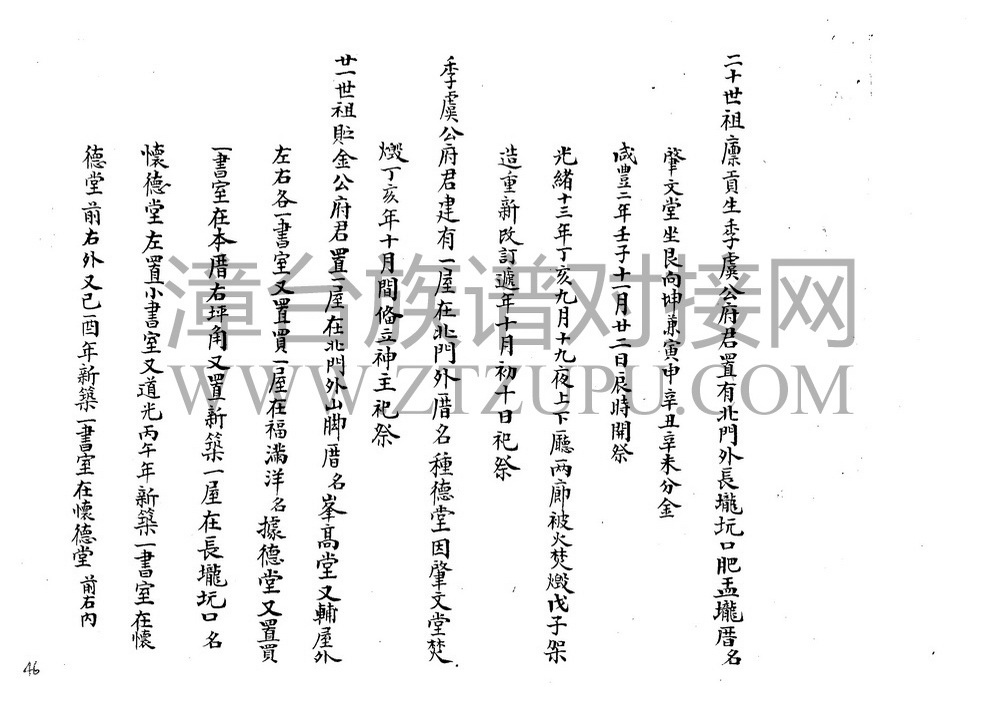 二十世祖廩貢生季虞公府君置有北門外長壠坑口肥盂壠厝名
肇文堂坐艮向坤兼寅申辛丑辛未分金
咸豐二年壬子十一月廿二日辰時開祭
光緒十三年丁亥九月十九夜上下廳兩廊被火焚燬戊子架
造重新改訂遞年十月初十日祀祭
季虞公府君建有一屋在北門外厝名種德堂因肇文堂焚
燬丁亥年十月間俻立神主祀祭
廿一世祖貯金公府君置一屋在北門外山脚厝名峯高堂又輔屋外
左右各一書室又置買一屋在福滿洋名據德堂又置買
一書室在本厝右坪角又置新築一屋在長壠坑口名
懷德堂左置小書室又道光丙午年新築一書室在懷
德堂前右外又己酉年新築一書室在懷德堂前右內
46
漳台族谱对接网
WWW.ZTZUPU.COM